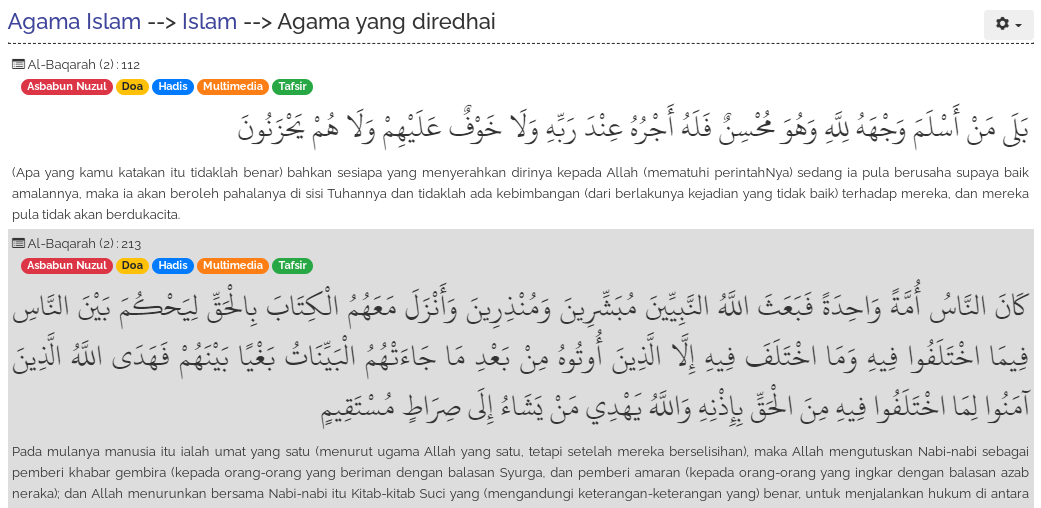 Agama Islam --> Islam --> Agama yang diredhai
Al-Baqarah (2) : 112
Asbabun Nuzul Doa Hadis Multimedia Tafsir
بَلَى مَنْ أَسْلَمَ وَجْهَهُ لِلَّهِ وَهُوَ مُحْسِنٌ فَلَهُ أَجْرُهُ عِنْدَ رَبِّهِ وَلَا خَوْفٌ عَلَيْهِمْ وَلَا هُمْ يَحْزَنُونَ
(Apa yang kamu katakan itu tidaklah benar) bahkan sesiapa yang menyerahkan dirinya kepada Allah (mematuhi perintahNya) sedang ia pula berusaha supaya baik
amalannya, maka ia akan beroleh pahalanya di sisi Tuhannya dan tidaklah ada kebimbangan (dari berlakunya kejadian yang tidak baik) terhadap mereka, dan mereka
pula tidak akan berdukacita.
Al-Baqarah (2) : 213
Asbabun Nuzul Doa Hadis Multimedia Tafsir
كَانَ النَّاسُ أُمَّةً وَاحِدَةً فَبَعَثَ اللَّهُ النَّبِيِّينَ مُبَشِّرِينَ وَمُنْذِرِينَ وَأَنْزَلَ مَعَهُمُ الْكِتَابَ بِالْحَقِّ لِيَحْكُمَ بَيْنَ النَّاسِ
فِيمَا اخْتَلَفُوا فِيهِ وَمَا اخْتَلَفَ فِيهِ إِلَّا الَّذِينَ أُوتُوهُ مِنْ بَعْدِ مَا جَاءَتْهُمُ الْبَيِّنَاتُ بَغْيًا بَيْنَهُمْ فَهَدَى اللَّهُ الَّذِينَ
آمَنُوا لِمَا اخْتَلَفُوا فِيهِ مِنَ الْحَقِّ بِإِذْنِهِ وَاللَّهُ يَهْدِي مَنْ يَشَاءُ إِلَى صِرَاطٍ مُسْتَقِيمٍ
Pada mulanya manusia itu ialah umat yang satu (menurut ugama Allah yang satu, tetapi setelah mereka berselisihan), maka Allah mengutuskan Nabi-nabi sebagai
pemberi khabar gembira (kepada orang-orang yang beriman dengan balasan Syurga, dan pemberi amaran (kepada orang-orang yang ingkar dengan balasan azab
neraka); dan Allah menurunkan bersama Nabi-nabi itu Kitab-kitab Suci yang (mengandungi keterangan-keterangan yang) benar, untuk menjalankan hukum di antara